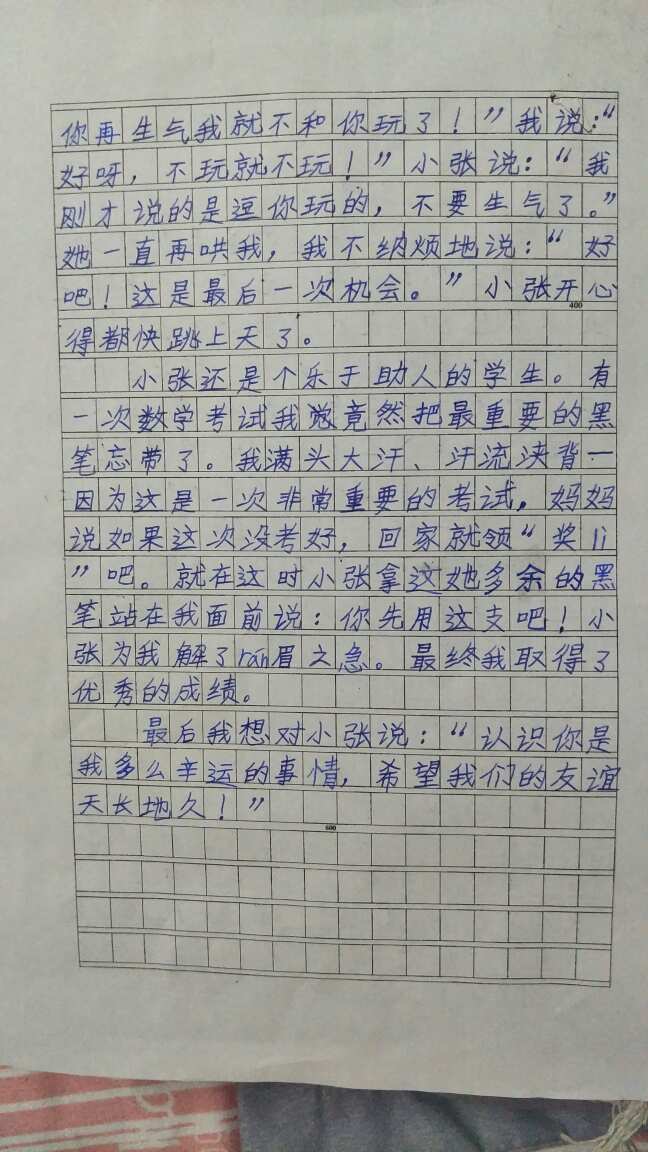 你再生气我就不和你玩了！”我说：“
好呀，不玩就不玩！”小张说：“我
刚才说的是逗你玩的，不要生气了。”
她一直再哄我，我不纳烦地说：“好
吧！这是最后一次机会。”小张开心
400
得都快跳上天了。
小张还是个乐于助人的学生。有
一次数学考试我竟然把最重要的黑
笔忘带了。我满头大汗、汗流浃背一
因为这是一次非常重要的考试，妈妈
说如果这次没考好，回家就领“奖li
”吧。就在这时小张拿这她多余的黑
笔站在我面前说：你先用这支吧！小
张为我解了rán眉之急。最终我取得了
优秀的成绩。
最后我想对小张说：“认识你是
我多么辛运的事情，希望我们的友谊
天长地久！”
600